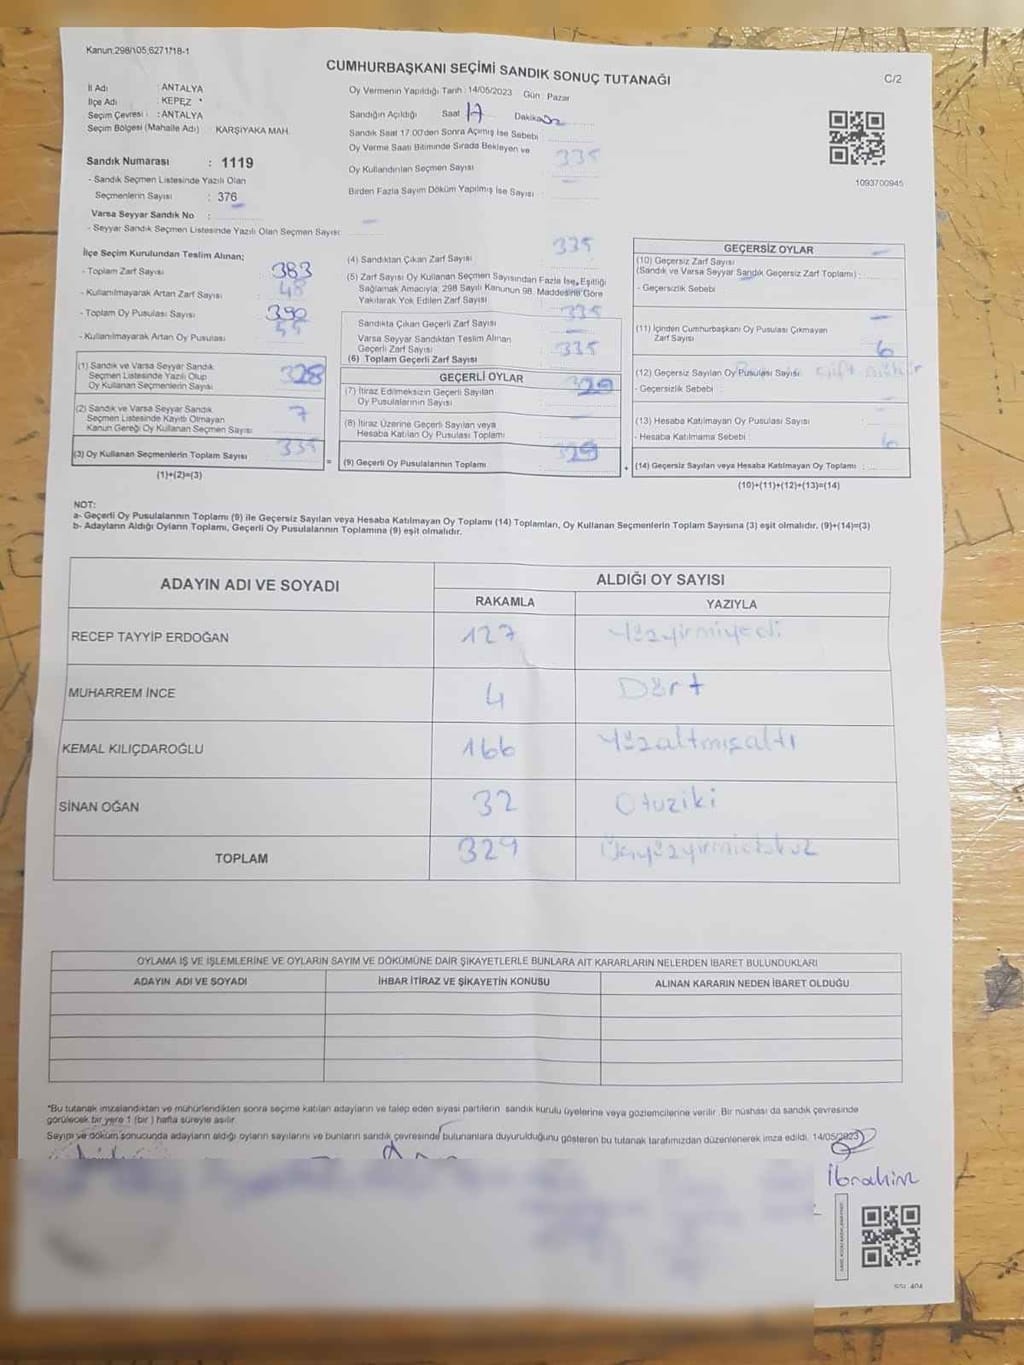 Kanun:298/105,6271/18-1
CUMHURBAŞKANI SEÇİMİ SANDIK SONUÇ TUTANAĞI
C/2
İl Adı : ANTALYA
İlçe Adı : KEPEZ
Seçim Çevresi : ANTALYA
Seçim Bölgesi (Mahalle Adı) : KARŞIYAKA MAH.
Sandık Numarası : 1119
- Sandık Seçmen Listesinde Yazılı Olan
Seçmenlerin Sayısı : 376
Varsa Seyyar Sandık No :
- Seyyar Sandık Seçmen Listesinde Yazılı Olan Seçmen Sayısı: -
Oy Vermenin Yapıldığı Tarih : 14/05/2023 Gün : Pazar
Sandığın Açıldığı Saat 17 Dakika
Sandık Saat 17:00'den Sonra Açılmış İse Sebebi
Oy Verme Saati Bitiminde Sırada Bekleyen ve
Oy Kullandırılan Seçmen Sayısı 335
Birden Fazla Sayım Döküm Yapılmış İse Sayısı : -
1093700945
İlçe Seçim Kurulundan Teslim Alınan;
- Toplam Zarf Sayısı 383
- Kullanılmayarak Artan Zarf Sayısı 48
- Toplam Oy Pusulası Sayısı 390
- Kullanılmayarak Artan Oy Pusulası 55
(1) Sandık ve Varsa Seyyar Sandık
Seçmen Listesinde Yazılı Olup
Oy Kullanan Seçmenlerin Sayısı 328
(2) Sandık ve Varsa Seyyar Sandık
Seçmen Listesinde Kayıtlı Olmayan
Kanun Gereği Oy Kullanan Seçmen Sayısı 7
(3) Oy Kullanan Seçmenlerin Toplam Sayısı 335
(1)+(2)=(3)
(4) Sandıktan Çıkan Zarf Sayısı 335
(5) Zarf Sayısı Oy Kullanan Seçmen Sayısından Fazla İse, Eşitliği
Sağlamak Amacıyla; 298 Sayılı Kanunun 98. Maddesine Göre
Yakılarak Yok Edilen Zarf Sayısı -
Sandıkta Çıkan Geçerli Zarf Sayısı 335
Varsa Seyyar Sandıktan Teslim Alınan
Geçerli Zarf Sayısı -
(6) Toplam Geçerli Zarf Sayısı 335
=
GEÇERLİ OYLAR
(7) İtiraz Edilmeksizin Geçerli Sayılan
Oy Pusulalarının Sayısı 329
(8) İtiraz Üzerine Geçerli Sayılan veya
Hesaba Katılan Oy Pusulası Toplamı -
(9) Geçerli Oy Pusulalarının Toplamı 329
+
GEÇERSİZ OYLAR
(10) Geçersiz Zarf Sayısı
(Sandık ve Varsa Seyyar Sandık Geçersiz Zarf Toplamı) : -
- Geçersizlik Sebebi
(11) İçinden Cumhurbaşkanı Oy Pusulası Çıkmayan
Zarf Sayısı -
(12) Geçersiz Sayılan Oy Pusulası Sayısı 6
- Geçersizlik Sebebi : Çift mühür
(13) Hesaba Katılmayan Oy Pusulası Sayısı -
- Hesaba Katılmama Sebebi
(14) Geçersiz Sayılan veya Hesaba Katılmayan Oy Toplamı : 6
(10)+(11)+(12)+(13)=(14)
NOT:
a- Geçerli Oy Pusulalarının Toplamı (9) ile Geçersiz Sayılan veya Hesaba Katılmayan Oy Toplamı (14) Toplamları, Oy Kullanan Seçmenlerin Toplam Sayısına (3) eşit olmalıdır. (9)+(14)=(3)
b- Adayların Aldığı Oyların Toplamı, Geçerli Oy Pusulalarının Toplamına (9) eşit olmalıdır.
ADAYIN ADI VE SOYADI ALDIĞI OY SAYISI
RAKAMLA YAZIYLA
RECEP TAYYİP ERDOĞAN 127 Yüzyirmiyedi
MUHARREM İNCE 4 Dört
KEMAL KILIÇDAROĞLU 166 Yüzaltmışaltı
SİNAN OĞAN 32 Otuziki
TOPLAM 329 Üçyüzyirmidokuz
OYLAMA İŞ VE İŞLEMLERİNE VE OYLARIN SAYIM VE DÖKÜMÜNE DAİR ŞİKAYETLERLE BUNLARA AİT KARARLARIN NELERDEN İBARET BULUNDUKLARI
ADAYIN ADI VE SOYADI İHBAR İTİRAZ VE ŞİKAYETİN KONUSU ALINAN KARARIN NEDEN İBARET OLDUĞU
*Bu tutanak imzalandıktan ve mühürlendikten sonra seçime katılan adayların ve talep eden siyasi partilerin sandık kurulu üyelerine veya gözlemcilerine verilir. Bir nüshası da sandık çevresinde
görülecek bir yere 1 (bir) hafta süreyle asılır.
Sayım ve döküm sonucunda adayların aldığı oyların sayılarını ve bunların sandık çevresinde bulunanlara duyurulduğunu gösteren bu tutanak tarafımızdan düzenlenerek imza edildi. 14/05/2023
İbrahim